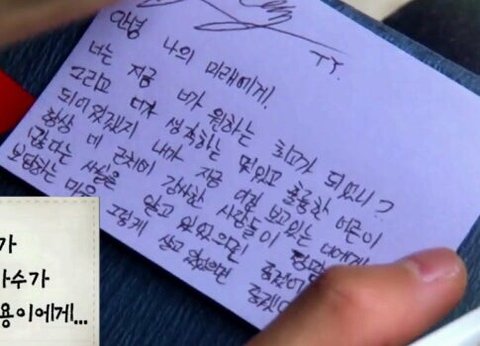 TT.
안녕 나의 미래에게.
너는 지금 너가 원하는 최고가 되었니?
그리고 너가 생각하는 멋있고 훌륭한 어른이
되어있겠지 내가 지금 여길 보고있는 너에게
항상 네 근처에 감사한 사람들이 정말
많다는 사실을 알고 있었으면 좋겠어
보답하는 마음 그렇게 살고 있었으면 좋겠다
가
가수가
용이에게...